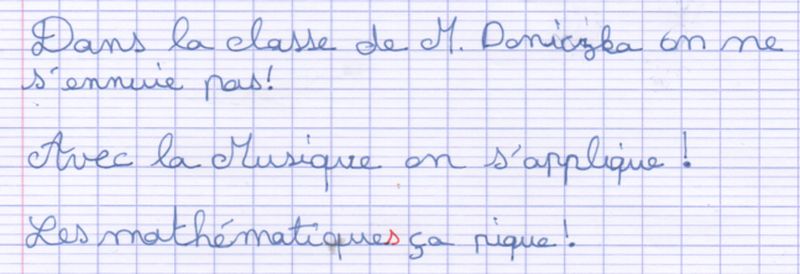 Dans la classe de M. Doniczka on ne
s'ennuie pas!
Avec la Musique on s'applique !
Les mathématiques ça pique !